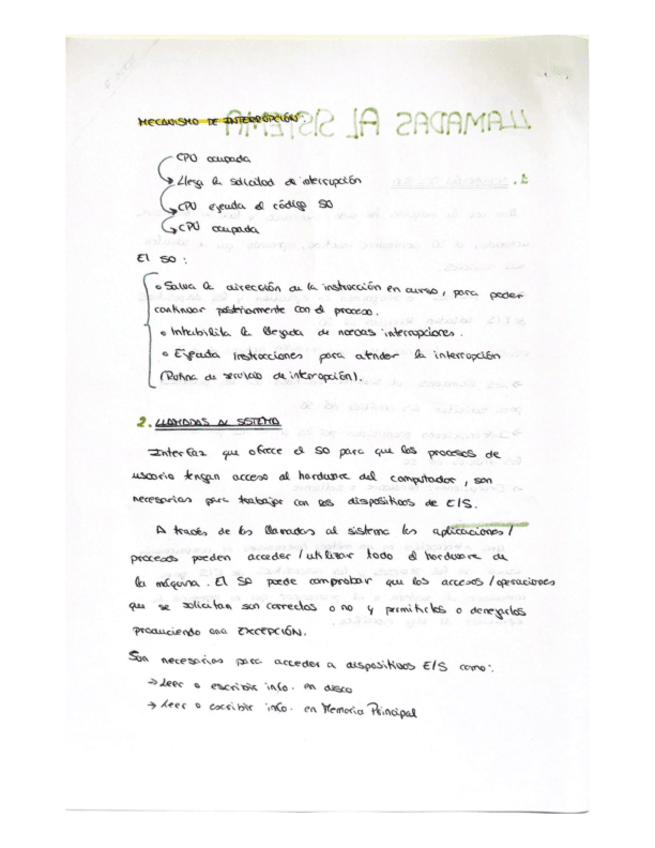 MECANISMO DE INTERRUPCIÓN:
CPU ocupada
Llega la solicitud de interrupción
CPU ejecuta el código SO
CPU ocupada
El SO:
• Salva la dirección de la instrucción en curso, para poder
continuar posteriormente con el proceso.
• Inhabilita la llegada de nuevas interrupciones.
• Ejecuta instrucciones para atender la interrupción
(Rutina de servicio de interrupción).
2. LLAMADAS AL SISTEMA
Interfaz que ofrece el SO para que los procesos de
usuario tengan acceso al hardware del computador, son
necesarias para trabajar con los dispositivos de E/S.
A través de las llamadas al sistema las aplicaciones/
procesos pueden acceder/utilizar todo el hardware de
la máquina. El SO puede comprobar que los accesos/operaciones
que se solicitan son correctos o no y permitirlos o denegarlos
produciendo una EXCEPCIÓN.
Son necesarias para acceder a dispositivos E/S como:
→ Leer o escribir info. en disco
→ Leer o escribir info. en Memoria Principal
LLAMADAS AL SISTEMA